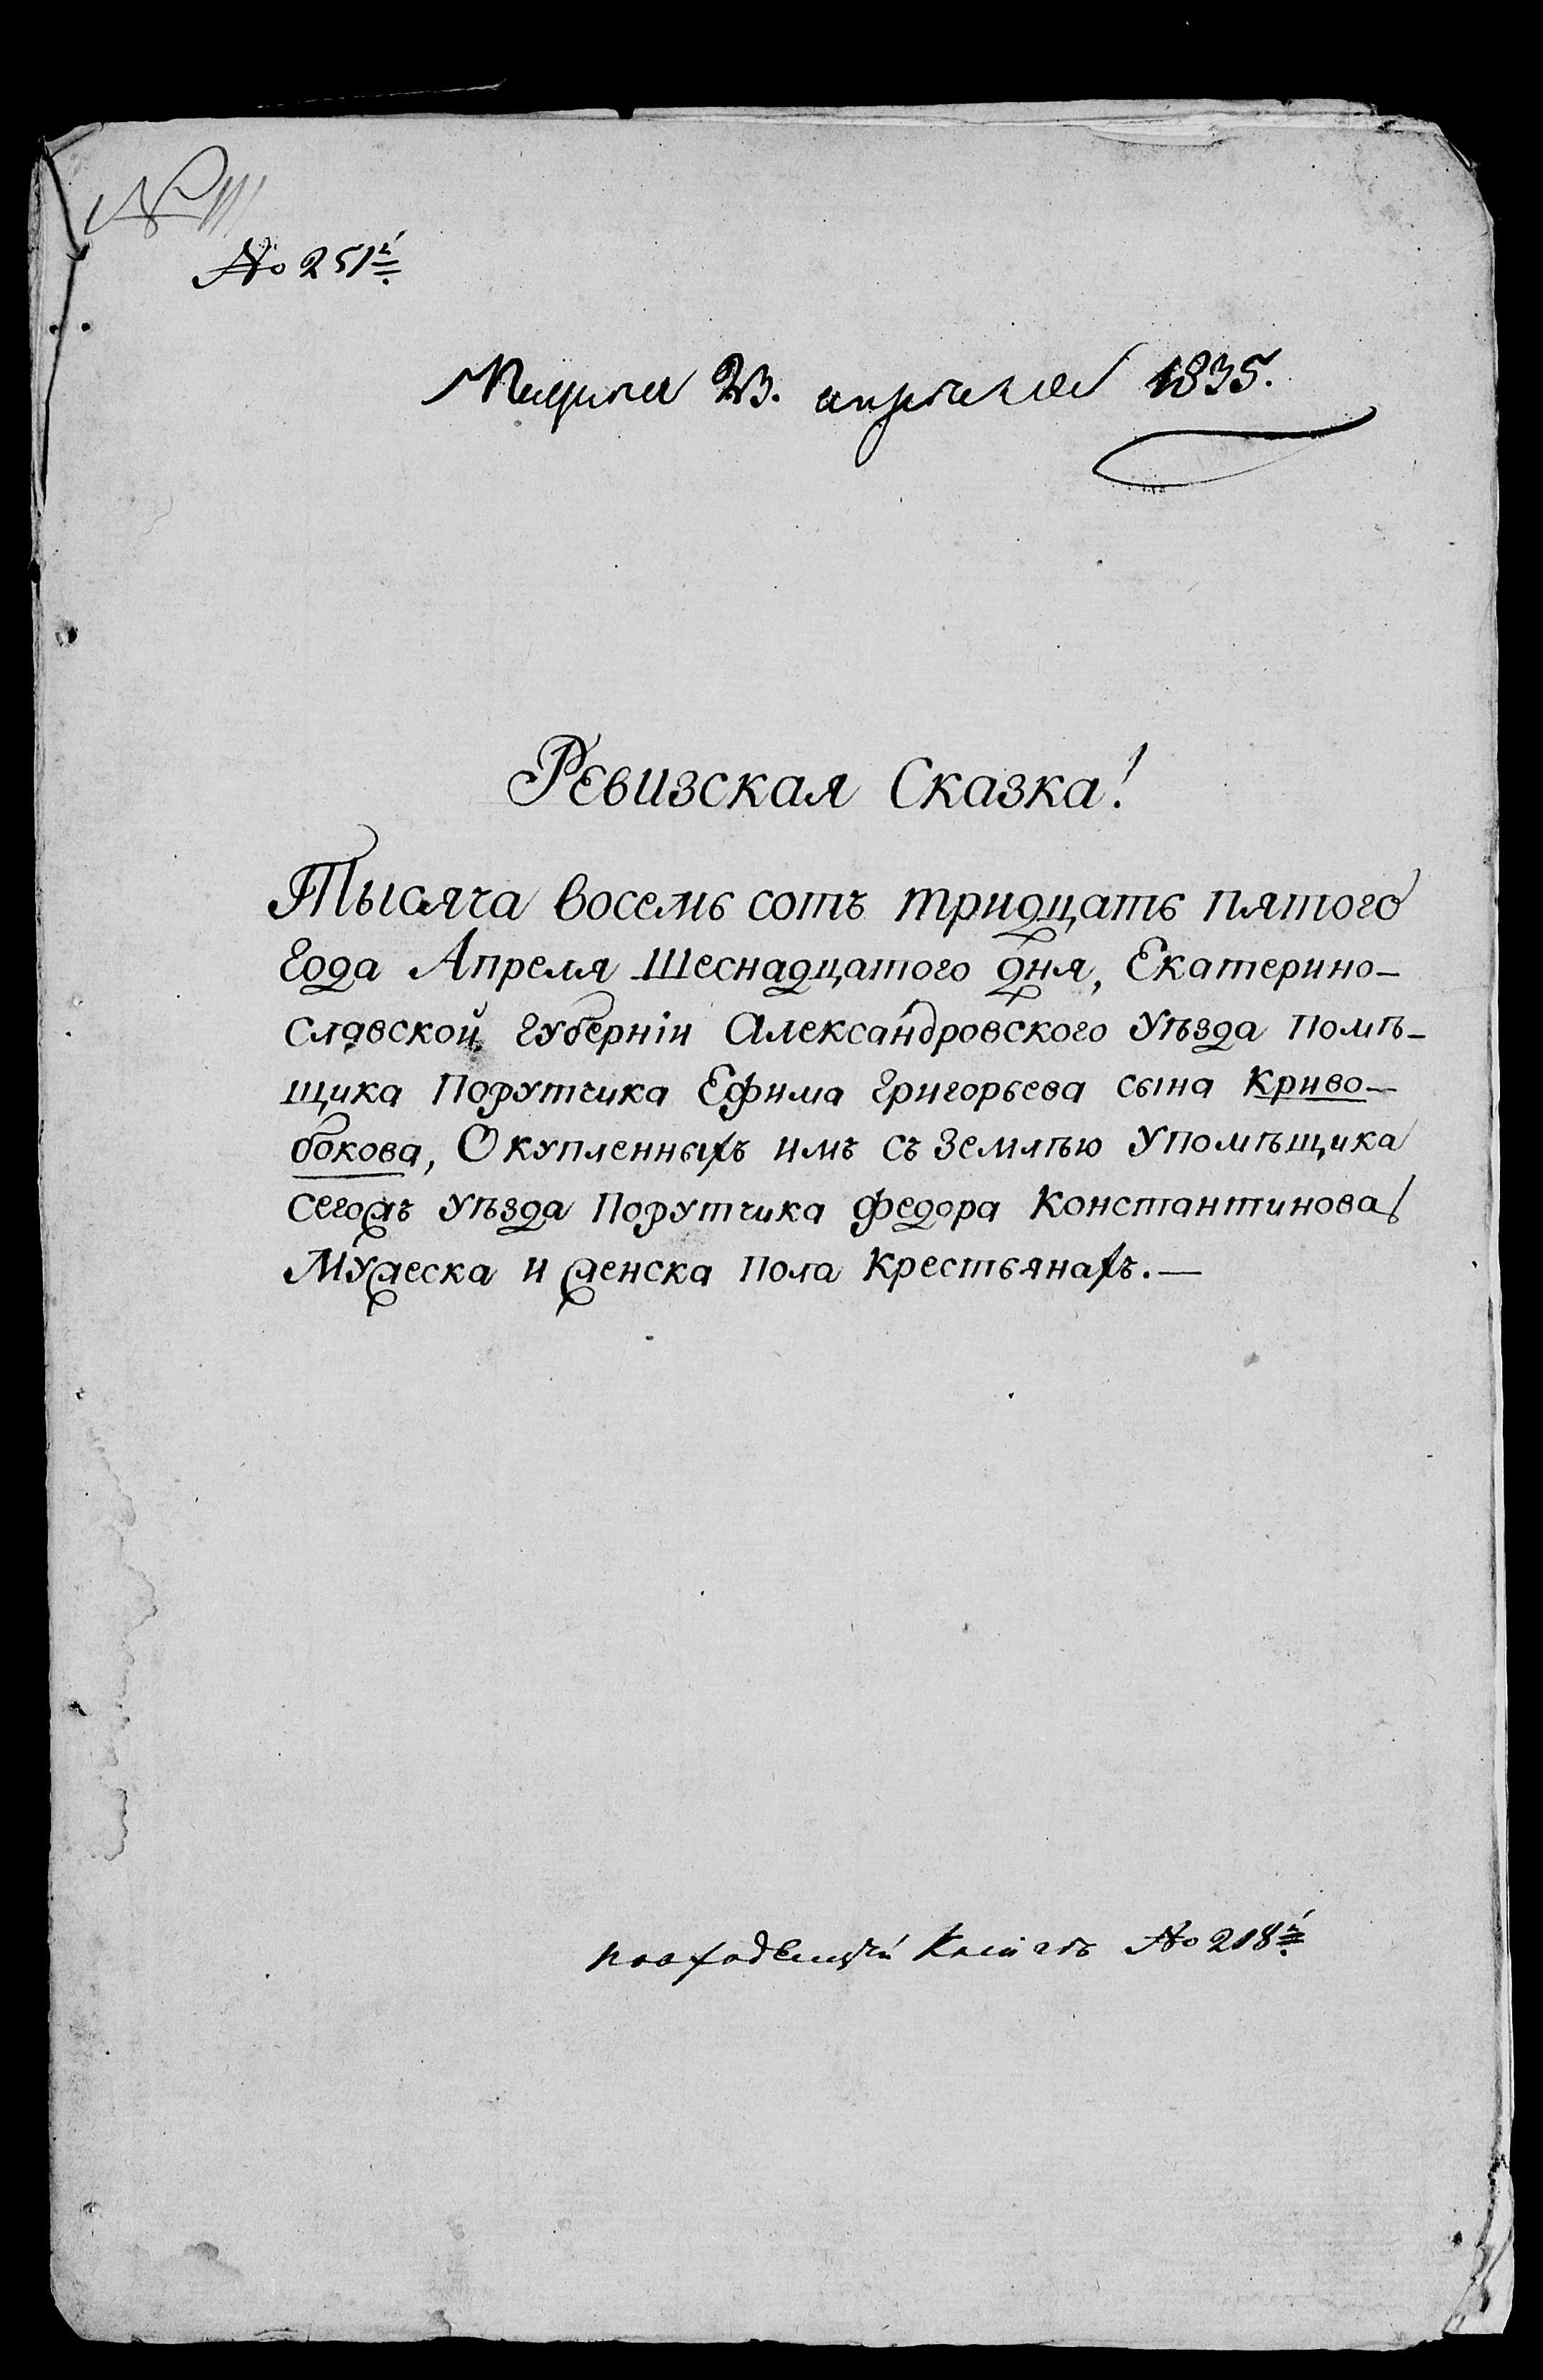 № 251й
23. апреля 1835.
Ревизская Сказка!
Тысяча восемь сотъ тридцать пятого
Года Апреля Шеснадцатого дня, Екатерино-
славской Губерніи Александровского Уѣзда Помѣ-
щика Порутчика Ефима Григорьева сына Криво-
бокова, О купленныхъ имъ съ Землѣю Упомѣщика
сегожъ Уѣзда Порутчика Федора Константинова
Мужеска и женска Пола Крестьянахъ.—
№ 218й